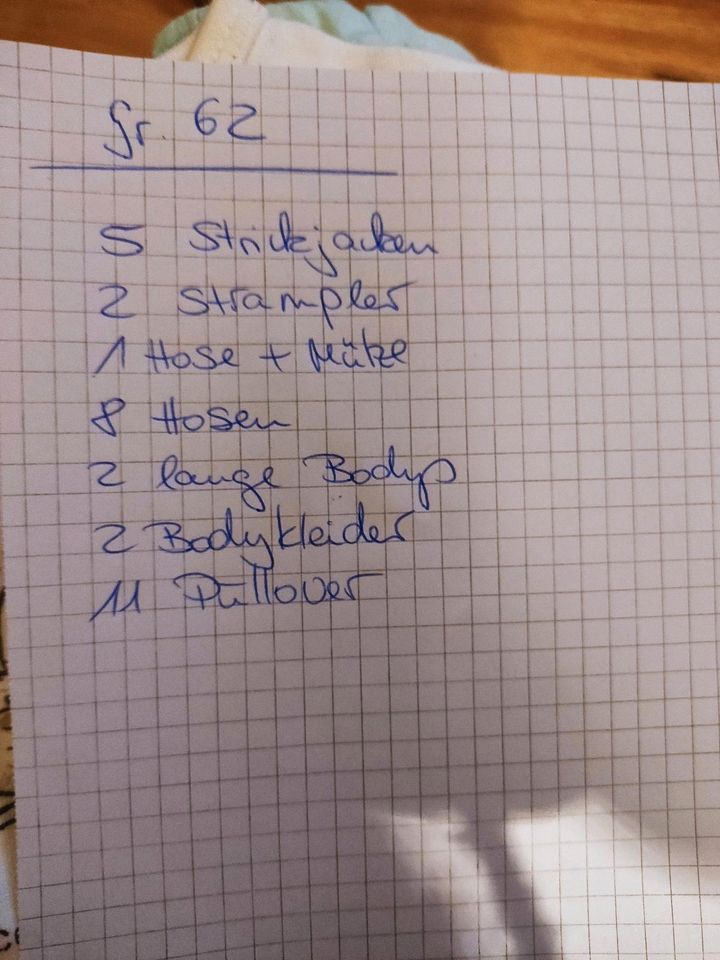 Gr. 62
5 Strickjacken
2 Strampler
1 Hose + Mütze
8 Hosen
2 lange Bodys
2 Bodykleider
11 Pullover